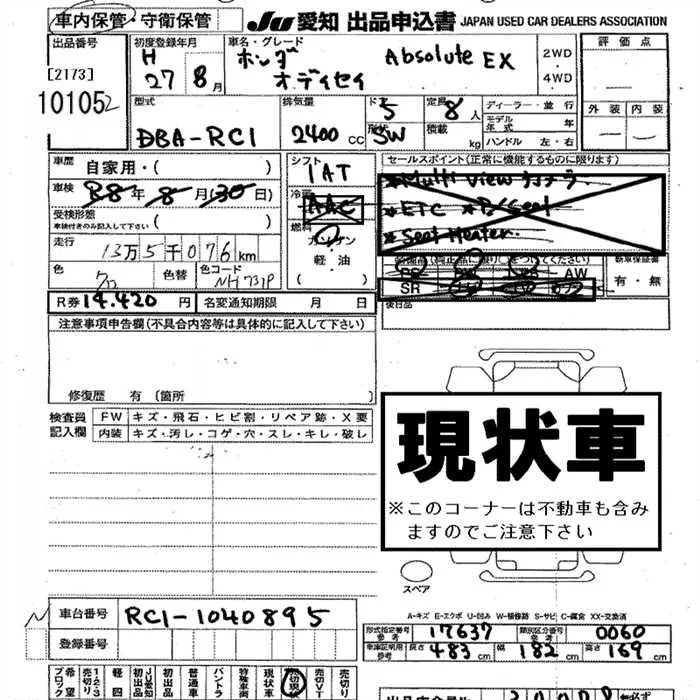 車内保管・守衛保管
JU 愛知 出品申込書 JAPAN USED CAR DEALERS ASSOCIATION
出品番号 初度登録年月 車名・グレード 評価点
[2173] H 27 8月 ホンダ オデッセイ Absolute EX 2WD ・ 4WD
101052
外装 内装
型式 排気量 ドア 定員 ディーラー・並行
DBA-RC1 2400cc 5 形状 SW 8人 積載 kg モデル年式 年
ハンドル 左・右
車歴 自家用・( ) シフト IAT セールスポイント(正常に機能するものに限ります)
車検 R8年8月30日) 冷房 AAC *Multi View カメラ
受検形態 ( ) *ETC
車検付きのみ記入して下さい 燃料 *Seat Heater.
走行 13万5千076km ガソリン
軽・油
( )
AW 新車保証書
SR 有・無
色 色替 色コード NH731P
R券 14.420円 名変通知期限 月 日 後日品
注意事項申告欄(不具合内容等は具体的に記入して下さい)
修復歴 有 〔箇所
検査員記入欄 FW キズ・飛石・ヒビ割・リペア跡・X要
内装 キズ・汚レ・コゲ・穴・スレ・キレ・破レ
現状車
※このコーナーは不動車も含みますのでご注意下さい
スペア
A-キズ E-エクボ U-凹み W-補修跡 S-サビ C-腐食 XX-交換済
車台番号 RC1-1040895
登録番号
形式指定番号 参考 17637 類別区分番号 参考 0060
車庫証明用 参考 長さ 483cm 幅 182cm 高さ 169cm
希望ブロック 売切り 1・2・3 軽四 JU愛知初出品 初出品 普通車 バントラ 特殊車両 現状車 売切現状 売切VT 売切り